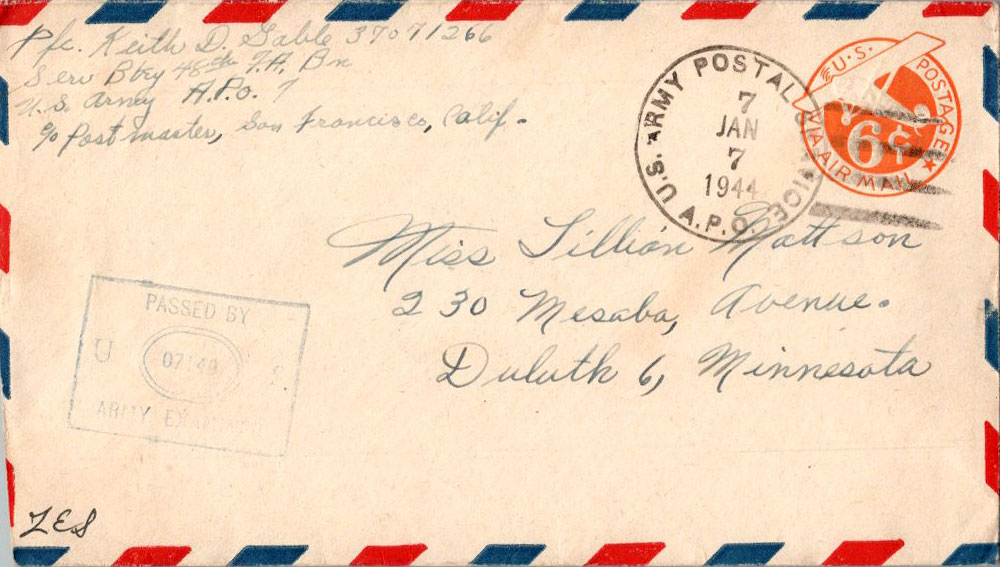 Pfc. Keith D. Gable 37071266
Serv Btry 48th F.A. Bn
U.S. Army A.P.O. 7
c/o Postmaster, San Francisco, Calif.
U.S. ARMY POSTAL SERVICE
A.P.O.
7
JAN
7
1944
U.S. POSTAGE
6¢
VIA AIR MAIL
Miss Lillian Mattson
230 Mesaba, Avenue.
Duluth 6, Minnesota
PASSED BY
U S
07149
ARMY EXAMINER
ZES